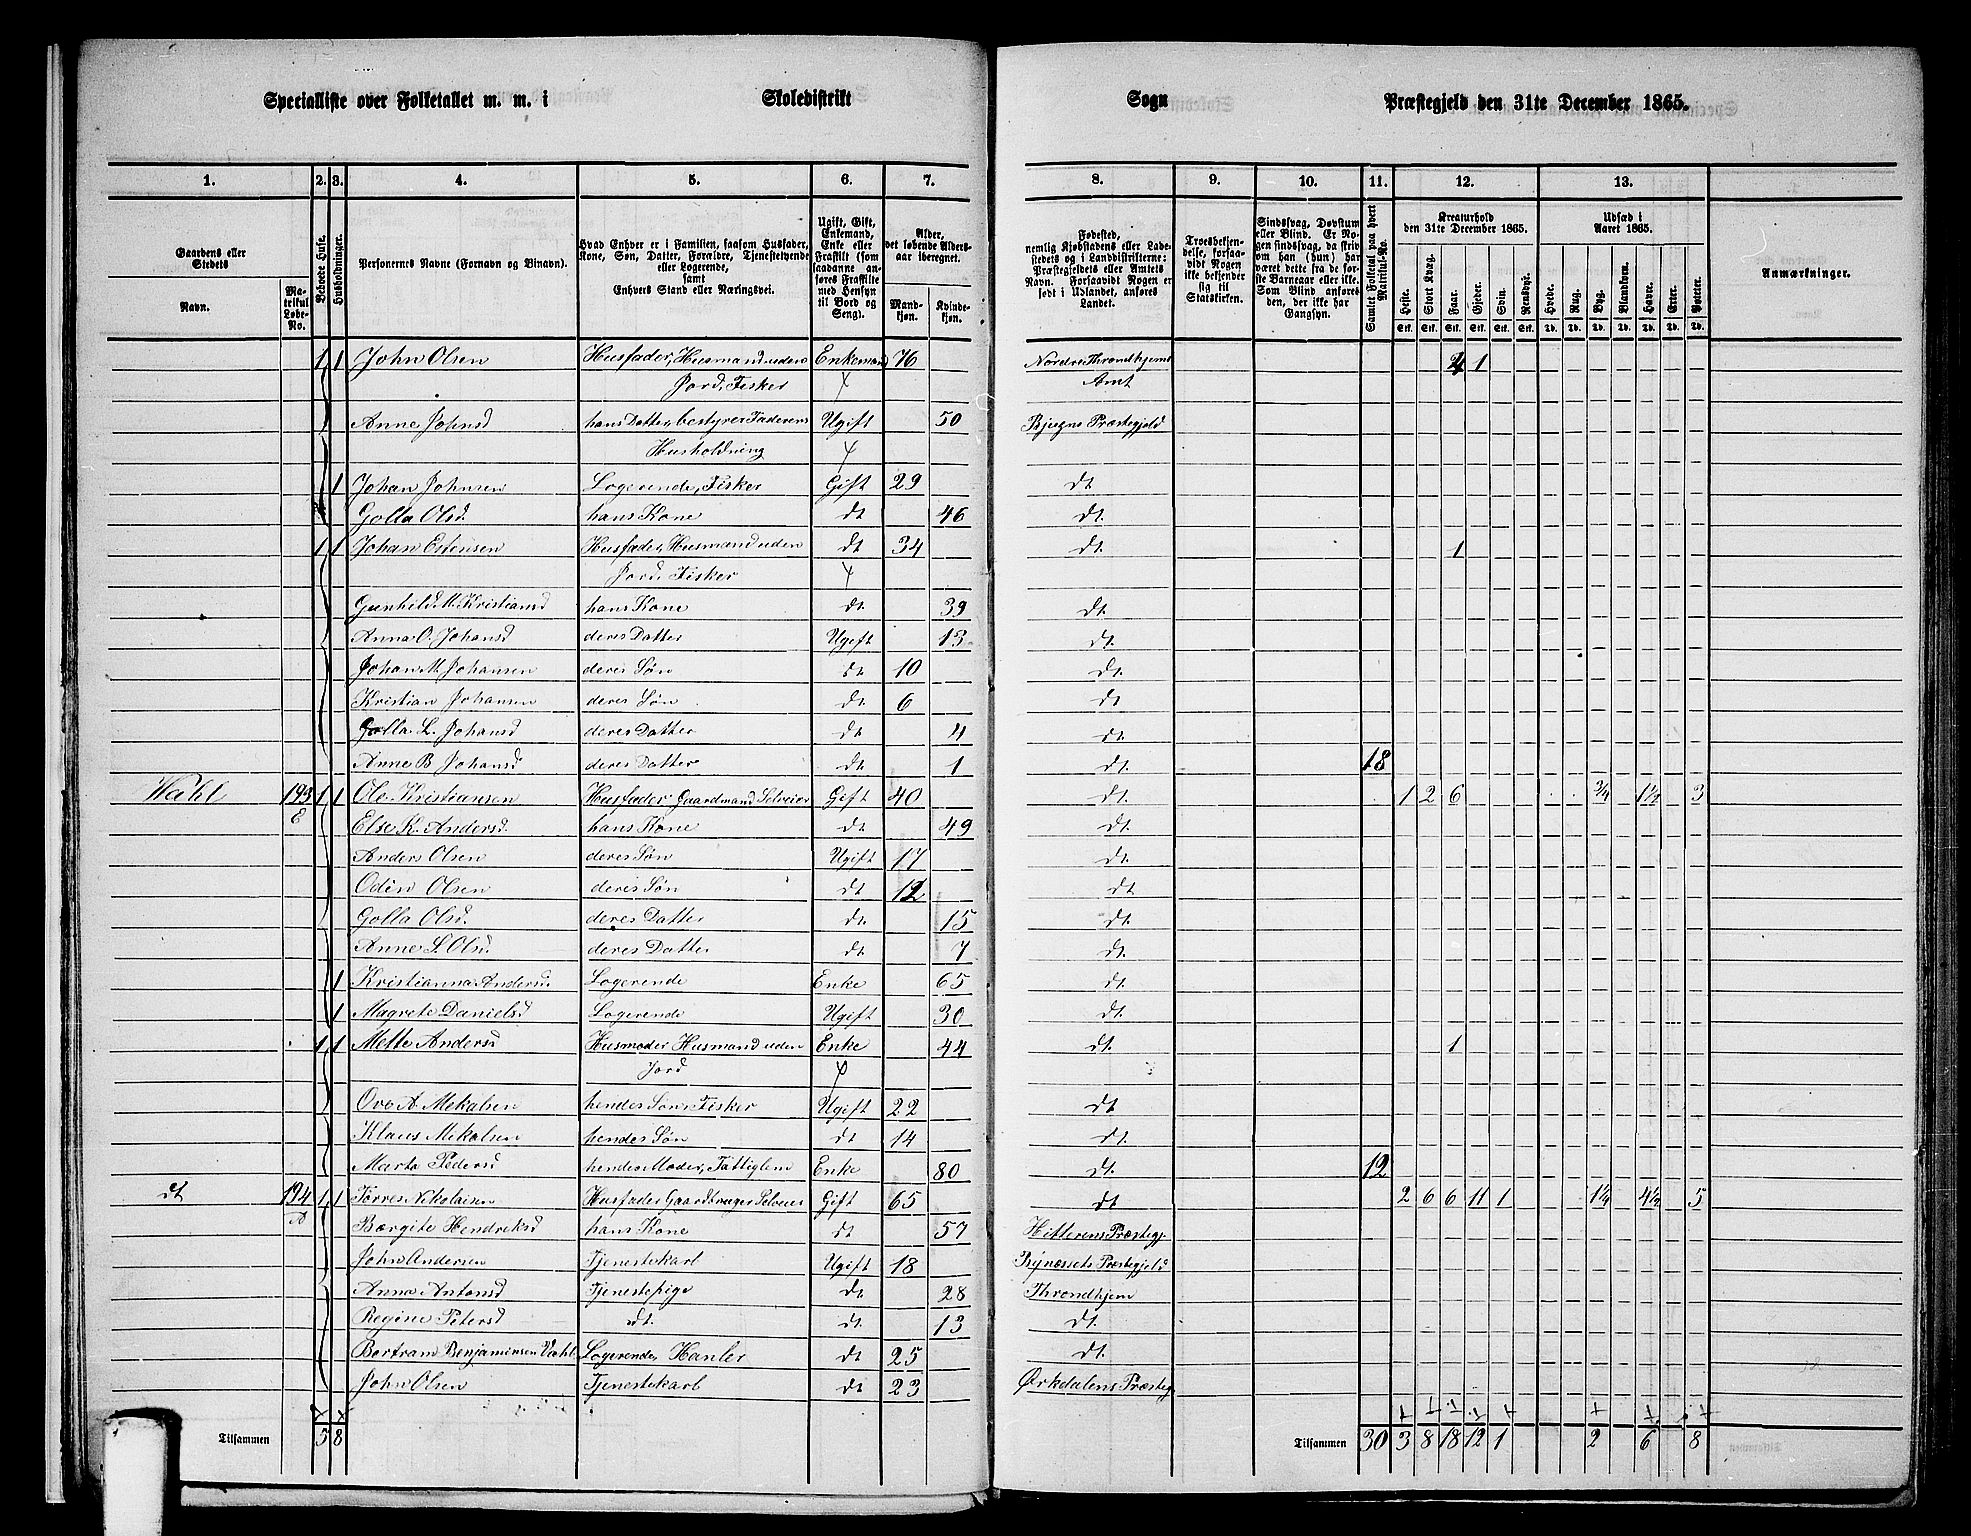 Specialliste over Folketallet m. m. i Skoledistrikt Sogn Præstegjeld den 31te December 1865.
1. 2. 3. 4. 5. 6. 7. 8. 9. 10. 11. 12. 13.
Gaardens eller Stedets
Navn.
Matrikul Løbe-No.
Beboede Huse.
Husholdninger.
Personernes Navne (Fornavn og Tilnavn).
Hvad Enhver er i Familien, saasom Husfader, Kone, Søn, Datter, Forældre, Tjenestetyende eller Logerende, samt Enhvers Stand eller Næringsvei.
Ugift, Gift, Enkemand, Enke eller Fraskilt (som saadanne anføres Fraskilte med Hensyn til Bord og Seng).
Alder, det løbende Aldersaar iberegnet.
Mandkjøn. Kvindekjøn.
Fødested, nemlig Kjøbstadens eller Ladestedets og i Landdistrikterne: Præstegjeldets eller Amtets Navn. Forsaavidt Nogen er født i Udlandet, anføres Landet.
Troesbekjendelse, forsaavidt Nogen ikke bekjender sig til Statskirken.
Sindssvag, Døvstum eller Blind. Er Nogen sindssvag, da skrives om han (hun) har været dette fra de første Barneaar eller ikke. Som Blind anføres den, der ikke har Gangsyn.
Samlet Folketal paa hvert Matrikul-No.
Kreaturhold den 31te December 1865.
Heste. Stort Kvæg. Faar. Gjeder. Svin. Rensdyr.
Udsæd i Aaret 1865.
Hvede. Rug. Byg. Blandkorn. Havre. Erter. Poteter.
Anmærkninger.
1 1 John Olsen Husfader, Husmand uden Enkemand 76 Nordre Throndhjems 4 1
Jord, Fisker Amt
Anne Johnsd hans Datter, bestyrer Faderens Ugift 50 Bjugns Præstegjeld
Husholdning
1 Johan Johnsen Logerende, Fisker Gift 29 dt.
Golla Olsd. hans Kone dt 46 dt.
1 1 Johan Estensen Husfader, Husmand uden dt 34 dt. 1
Jord, Fisker
Gunhild M. Kristiansd hans Kone dt. 39 dt.
Anna O. Johansd deres Datter Ugift 13 dt.
Johan M. Johansen deres Søn dt 10 dt.
Kristian Johansen deres Søn dt. 6 dt.
Golla L. Johansd deres Datter dt. 4 dt.
Anne B Johansd deres Datter dt. 1 dt. 18
Wahl 193 1 1 Ole Kristiansen Husfader, Gaardmand Selveier Gift 40 dt. 1 2 6 3/4 1½ 3
E Else K. Andersd. hans Kone dt. 49 dt.
Anders Olsen deres Søn Ugift 17 dt.
Odin Olsen deres Søn dt 12 dt
Golla Olsd. deres Datter dt. 15 dt.
Anne S. Olsd. deres Datter dt. 7 dt.
1 Kristianna Andersd. Logerende Enke 65 dt.
1 Magrete Danielsd Logerende Ugift 30 dt.
1 1 Mette Andersd Husmoder Husmand uden Enke 44 dt. 1
Jord
Ove A. Mekalsen hendes Søn, Fisker Ugift 22 dt.
Klaus Mekalsen hendes Søn dt 14 dt.
Marta Pedersd hendes Moder, Fattiglem Enke 80 dt. 12
dt 194 1 1 Torres Nikolaisen Husfader Gaardbruger Selveier Gift 65 dt 2 6 6 11 1 1¼ 4½ 5
A Bærgite Hendreksd hans Kone dt 57 Hitterens Præstegj.
John Andersen Tjenestekarl Ugift 18 Bynæssets Præstegjeld
Anna Antonsd Tjenestepige dt. 28 Throndhjem
Regine Petersd dt. dt. 13 dt.
Bertram Benjaminsen Vahl Logerende, Hanler dt 25 dt.
John Olsen Tjenestekarl dt 23 Ørkdalens Præsteg.
Tilsammen 5 8 Tilsammen 30 3 8 18 12 1 2 6 8